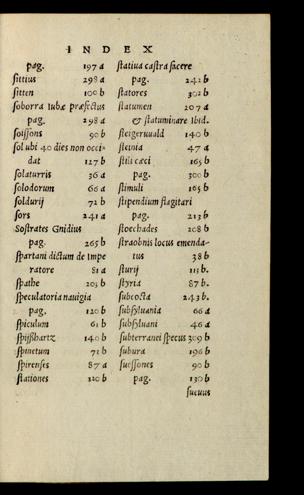 INDEX
pag. 197 a
sittius 298 a
sitten 100 b
soborra Iubæ præfectus
pag. 298 a
soissons 90 b
sol ubi 40 dies non occi-
dat 127 b
solaturris 36 a
solodorum 66 a
soldurij 72 b
sors 241 a
Sostrates Gnidius
pag. 265 b
spartani dictum de impe
ratore 81 a
spathe 205 b
speculatoria nauigia
pag. 120 b
spiculum 61 b
spijßhartz 140 b
spinetum 71 b
spirenses 87 a
stationes 120 b
statiua castra facere
pag. 242 b
statores 302 b
statumen 207 a
& statuminare Ibid.
steigeruuald 140 b
steinia 47 a
stili cæci 165 b
pag. 300 b
stimuli 165 b
stipendium flagitari
pag. 213 b
stoechades 208 b
straobnis locus emenda-
tus 38 b
sturij 115 b.
styria 87 b.
subcocta 243 b.
subsyluania 66 a
subsyluani 46 a
subterranei specus 309 b
subura 196 b
suessones 90 b
pag. 130 b
sueuus